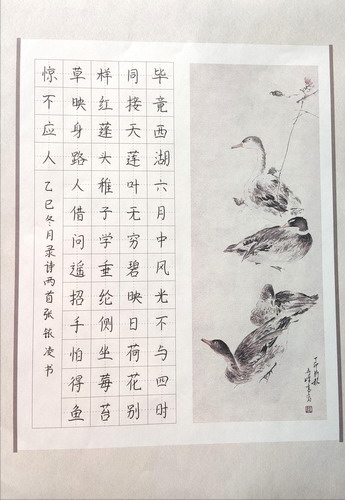 毕竟西湖六月中风光不与四时
同接天莲叶无穷碧映日荷花别
样红蓬头稚子学垂纶侧坐莓苔
草映身路人借问遥招手怕得鱼
惊不应人 乙巳冬月录诗两首张振凌书